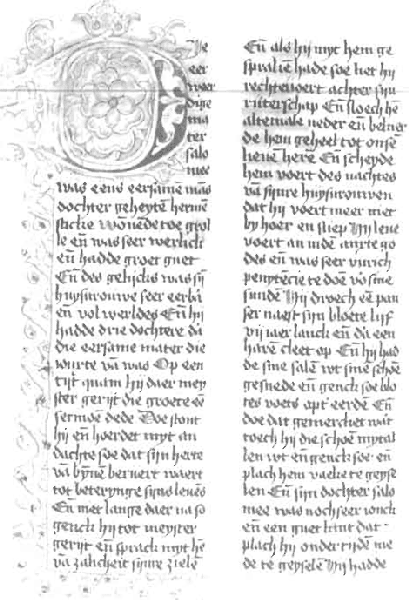 De
eer
weer
dige
ma
ter
salo
mee
was eens eersame mās
dochter geheytē hermē
sticke wonēde toe grol
le eñ was seer werlick
eñ hadde groet guet
Eñ des gelicks was sȳ
huysvrouwe seer eerbā
eñ vol werldes Eñ hȳ
hadde drie dochtere dā
die eersame mater die
vierte vā was Op een
tijt quam hij daer mey
ster gerijt die groete eñ
sermoē dede Doe stont
hij eñ hoerdet myt an
dachte soe dat sijn herte
vā bȳnē beruert waert
tot beteringe sijns leuēs
Eñ niet lange daer na so
genck hij tot meyster
gerijt eñ sprack myt hē
vā salicheit sijnre ziele
Eñ als hij myt hem ge
sprakē hadde soe liet hij
rechtevoert achter sijn
ruterschap Eñ sloech hē
altemale neder eñ bekeer
de hem geheel tot onsē
lieuē here Eñ scheyde
hem voert des nachtes
vā sijnre huysvrouwen
dat hij voert meer niet
by hoer en sliep Hij leue
voert an indē anxte go
des eñ was seer vurich
penytēcie te doē vā sine
sundē Hij droech eē pan
ser naest sijn bloete lijf
vij iaer lanck eñ dā een
harē cleet op Eñ hij had
de sine salē wt sinē schoē
gesnedē eñ genck soe blo
tes voets opt eerdē Eñ
doe dat gemercket wart
toech hij die schoē mytal
len wt eñ genck soe eñ
plach hem vacke te geyse
len Eñ sijn dochter salo
mee was noch seer ionck
eñ een guet kint dat
plach hij onder tydē me
de te geyselē Hij hadde